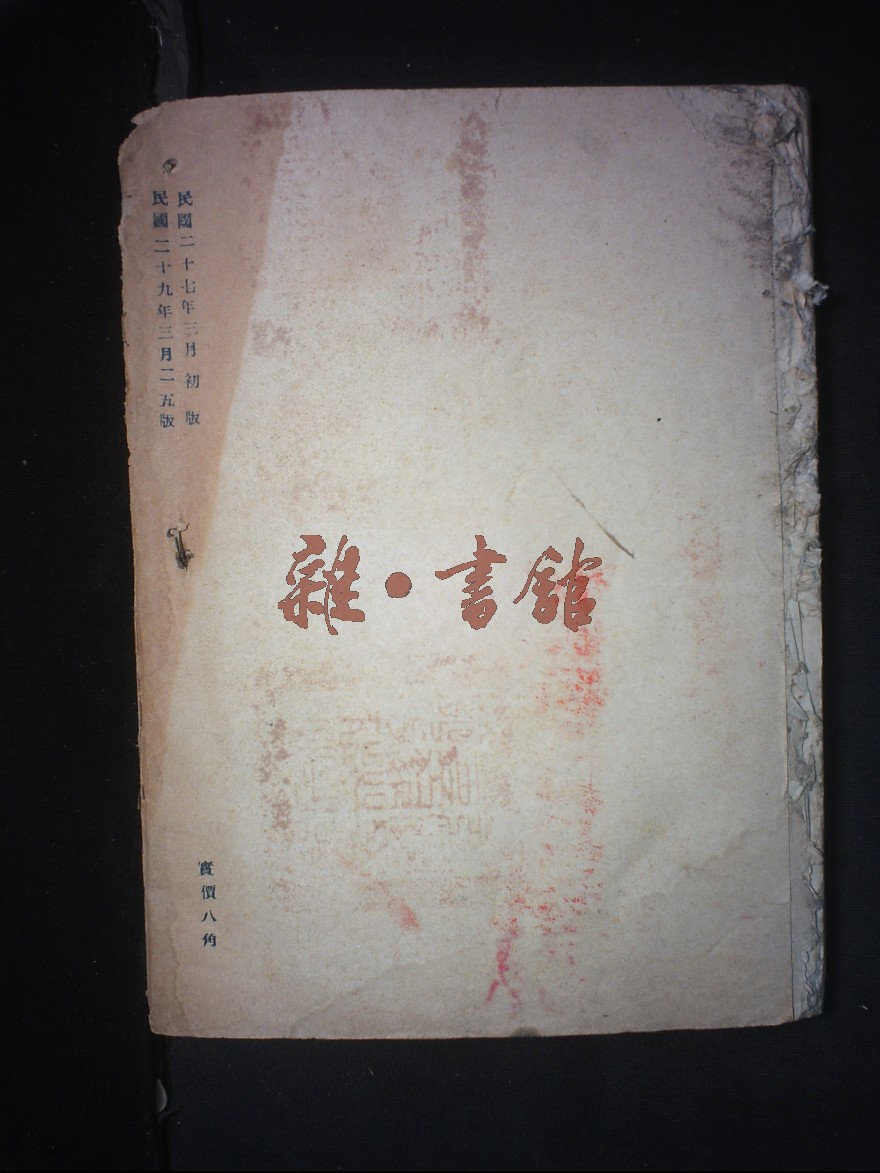 民國二十七年三月初版
民國二十九年三月二五版
實價八角
雜·書館